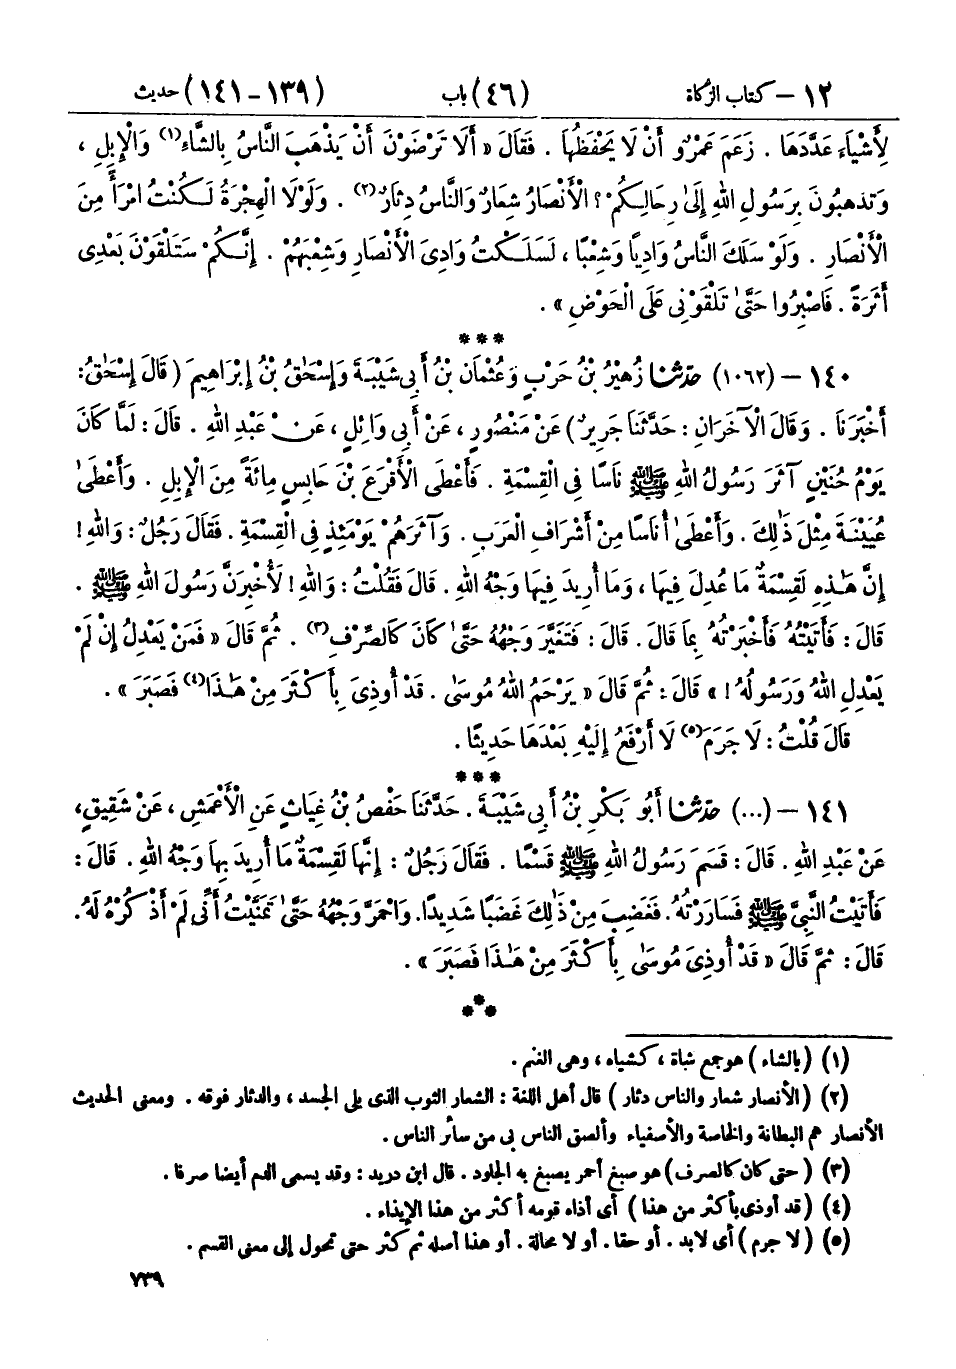 ١٢ – كتاب الزكاة (٤٦) باب (١٣٩ – ١٤١) حديث
لِأَشْيَاءَ عَدَّدَهَا . زَعَمَ عَمْرٌو أَنْ لَا يَحْفَظُهَا . فَقَالَ « أَلَا تَرْضَوْنَ أَنْ يَذْهَبَ النَّاسُ بِالشَّاءِ(١) وَالْإِبِلِ ،
وَتَذهبُونَ بِرَسُولِ اللهِ إِلَىٰ رِحَالِكُمْ ؟ الْأَنْصَارُ شِعَارٌ وَالنَّاسُ دِثَارٌ(٢) . وَلَوْلَا الْهِجْرَةُ لَكُنْتُ امْرَأً مِنَ
الْأَنْصَارِ . وَلَوْ سَلَكَ النَّاسُ وَادِيًا وَشِعْبًا ، لَسَلَكْتُ وَادِىَ الْأَنْصَارِ وَشِعْبَهُمْ . إِنَّكُمْ سَتَلْقَوْنَ بَعْدِى
أَثَرَةً . فَاصْبِرُوا حَتَّىٰ تَلْقَوْنِى عَلَى الْحَوْضِ » .
***
١٤٠ – (١٠٦٢) حدّثنا زُهَيْرُ بْنُ حَرْبٍ وَعُثْمَانُ بْنُ أَبِى شَيْبَةَ وَإِسْحَاقُ بْنُ إِبْرَاهِيمَ ( قَالَ إِسْحَاقُ :
أَخْبَرَنَا . وَقَالَ الْآخَرَانِ : حَدَّثَنَا جَرِيرٌ ) عَنْ مَنْصُورٍ ، عَنْ أَبِى وَائِلٍ ، عَنْ عَبْدِ اللهِ . قَالَ : لَمَّا كَانَ
يَوْمُ حُنَيْنٍ آثَرَ رَسُولُ اللهِ ﷺ نَاسًا فِى الْقِسْمَةِ . فَأَعْطَى الْأَقْرَعَ بْنَ حَابِسٍ مِائَةً مِنَ الْإِبِلِ . وَأَعْطَىٰ
عُيَيْنَةَ مِثْلَ ذَٰلِكَ . وَأَعْطَىٰ أُنَاسًا مِنْ أَشْرَافِ الْعَرَبِ . وَآثَرَهُمْ يَوْمَئِذٍ فِى الْقِسْمَةِ . فَقَالَ رَجُلٌ : وَاللهِ !
إِنَّ هَٰذِهِ لَقِسْمَةٌ مَا عُدِلَ فِيهَا ، وَمَا أُرِيدَ فِيهَا وَجْهُ اللهِ . قَالَ فَقُلْتُ : وَاللهِ ! لَأُخْبِرَنَّ رَسُولَ اللهِ ﷺ .
قَالَ : فَأَتَيْتُهُ فَأَخْبَرْتُهُ بِمَا قَالَ . قَالَ : فَتَغَيَّرَ وَجْهُهُ حَتَّىٰ كَانَ كَالصِّرْفِ(٣) . ثُمَّ قَالَ « فَمَنْ يَعْدِلُ إِنْ لَمْ
يَعْدِلِ اللهُ وَرَسُولُهُ ! » قَالَ : ثُمَّ قَالَ « يَرْحَمُ اللهُ مُوسَىٰ . قَدْ أُوذِىَ بِأَكْثَرَ مِنْ هَٰذَا(٤) فَصَبَرَ » .
قَالَ قُلْتُ : لَا جَرَمَ(٥) لَا أَرْفَعُ إِلَيْهِ بَعْدَهَا حَدِيثًا .
***
١٤١ – (...) حدّثنا أَبُو بَكْرِ بْنُ أَبِى شَيْبَةَ . حَدَّثَنَا حَفْصُ بْنُ غِيَاثٍ عَنِ الْأَعْمَشِ ، عَنْ شَقِيقٍ ،
عَنْ عَبْدِ اللهِ . قَالَ : قَسَمَ رَسُولُ اللهِ ﷺ قَسْمًا . فَقَالَ رَجُلٌ : إِنَّهَا لَقِسْمَةٌ مَا أُرِيدَ بِهَا وَجْهُ اللهِ . قَالَ :
فَأَتَيْتُ النَّبِىَّ ﷺ فَسَارَرْتُهُ . فَغَضِبَ مِنْ ذَٰلِكَ غَضَبًا شَدِيدًا . وَاحْمَرَّ وَجْهُهُ حَتَّىٰ تَمَنَّيْتُ أَنِّى لَمْ أَذْكُرْهُ لَهُ .
قَالَ : ثُمَّ قَالَ « قَدْ أُوذِىَ مُوسَىٰ بِأَكْثَرَ مِنْ هَٰذَا فَصَبَرَ » .
***
(١) ( بالشاء ) هو جمع شاة ، كشياه ، وهى الغنم .
(٢) ( الأنصار شعار والناس دثار ) قال أهل اللغة : الشعار الثوب الذى يلى الجسد ، والدثار فوقه . ومعنى الحديث
الأنصار هم البطانة والخاصة والأصفياء وألصق الناس بى من سائر الناس .
(٣) ( حتى كان كالصرف ) هو صبغ أحمر يصبغ به الجلود . قال ابن دريد : وقد يسمى الدم أيضا صرفا .
(٤) ( قد أوذى بأكثر من هذا ) أى آذاه قومه أكثر من هذا الإيذاء .
(٥) ( لا جرم ) أى لابد . أو حقا . أو لا محالة . أو هذا أصله ثم كثر حتى تحول إلى معنى القسم .
٧٣٩